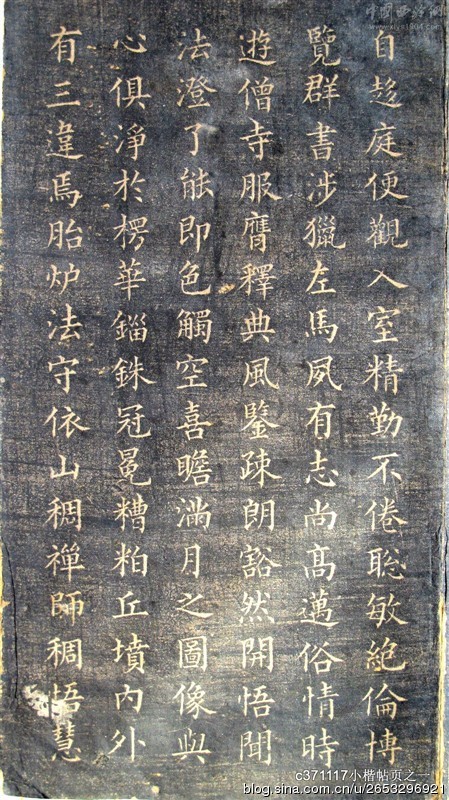 自趍庭便觀入室精勤不倦聡敏絶倫博
覽群書涉獵左馬夙有志尚高邁俗情時
遊僧寺服膺釋典風鑒疎朗豁然開悟聞
法澄了能即色觸空喜瞻滿月之圖像與
心俱淨於楞華錙銖冠冕糟粕丘墳內外
有三違焉胎炉法守依山稠禪師稠悟慧
c371117小楷帖页之一
blog.sina.com.cn/u/2653296921